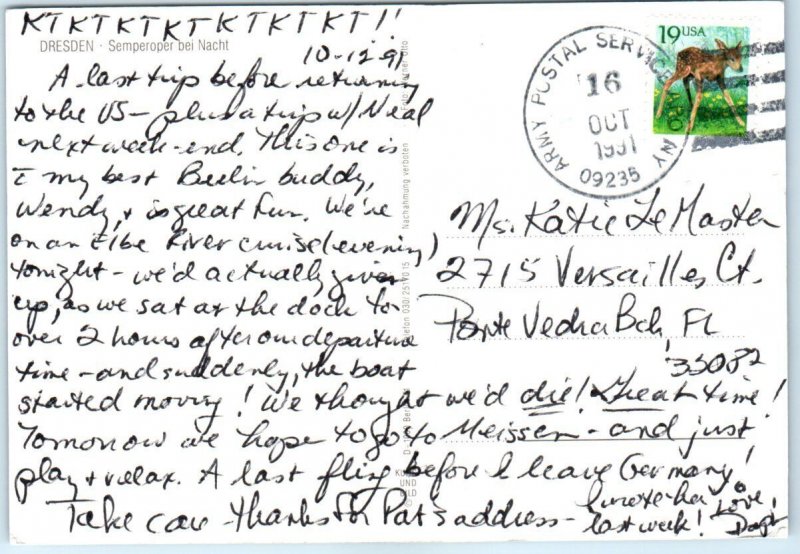 KTKTKTKTKTKTKTKT!!
DRESDEN · Semperoper bei Nacht
10-12-91
A last trip before returning
to the US - plus a trip w/ Neal
next week-end. This one is
c̄ my best Berlin buddy,
Wendy, + is great fun. We're
on an Elbe River cruise (evening)
tonight - we'd actually given
up, as we sat at the dock for
over 2 hours after our departure
time - and suddenly, the boat
started moving! We thought we'd die! Great time!
Tomorrow we hope to go to Meissen - and just
play + relax. A last fling before I leave Germany!
Take care - thanks for Pat's address -
I wrote her
last week!
Love,
Daph
Nachahmung verboten
Telefon 030/25170 15
KUNST
UND
BILD
ARMY POSTAL SERVICE NY
16
OCT
1991
09235
19 USA
Ms. Katie LeMaster
2715 Versailles Ct.
Ponte Vedra Bch, FL
33082